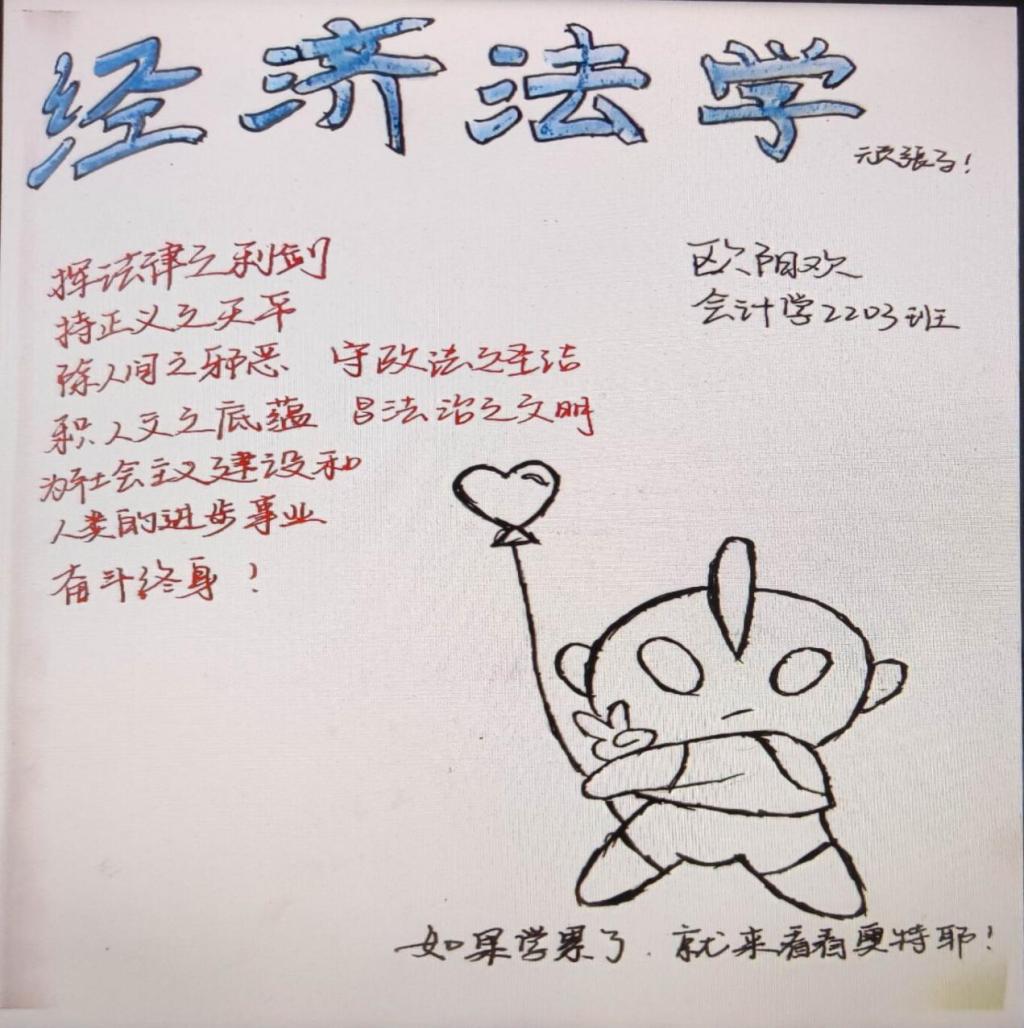 经济法学
欧阳欢
会计学2203班
挥法律之利剑
持正义之天平
除人间之邪恶 守政法之圣洁
积人文之底蕴 昌法治之文明
为社会主义建设和
人类的进步事业
奋斗终身！
如果学累了.就来看看奥特耶！